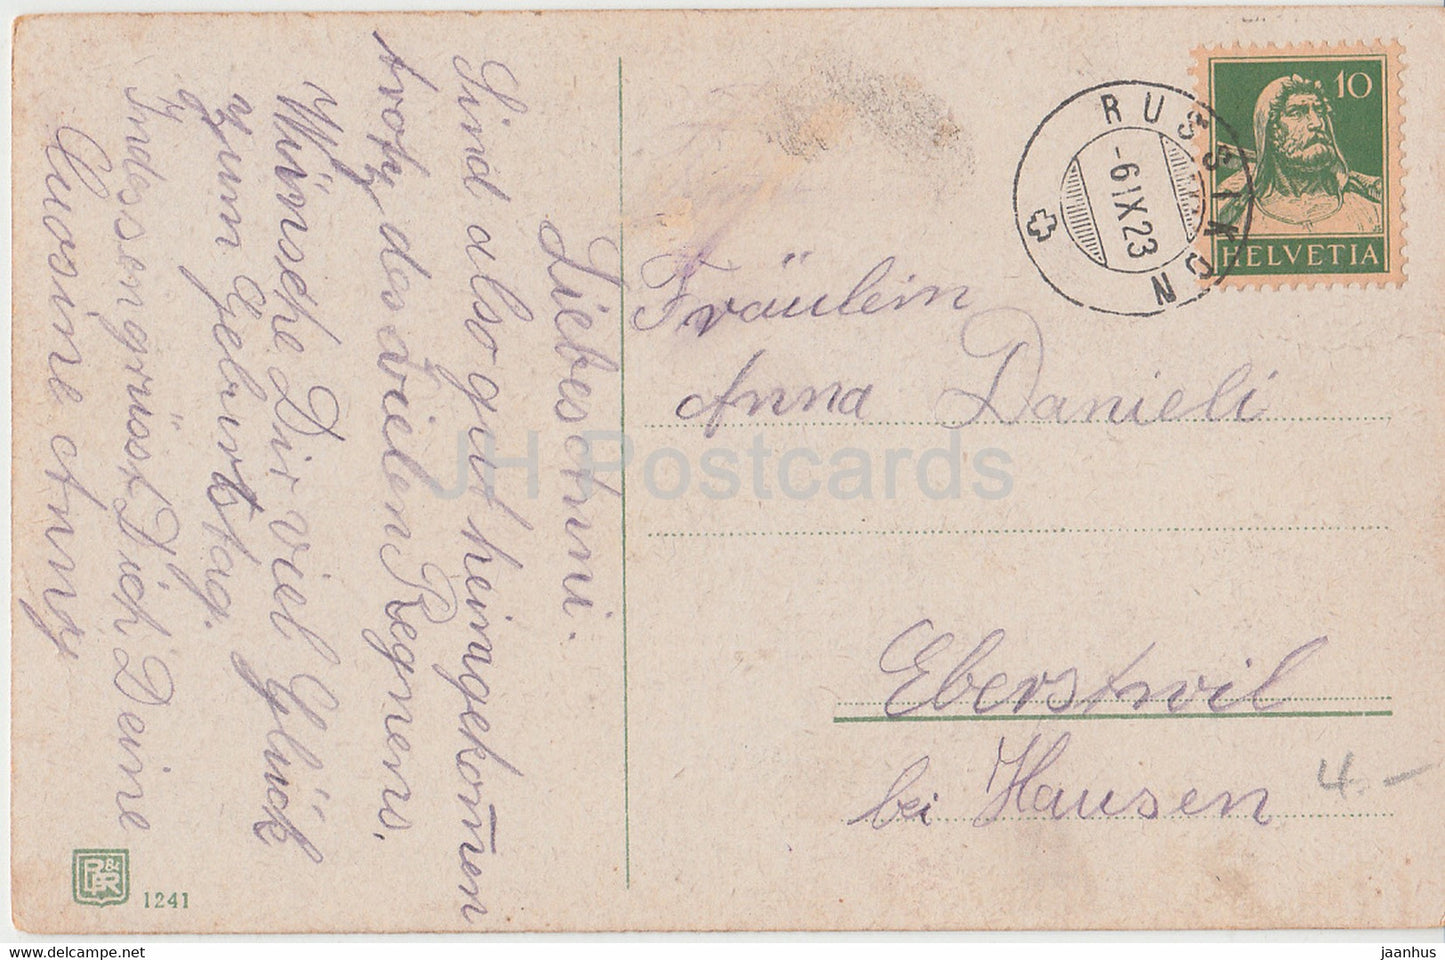 Liebes Anni.
Sind also gut heimgekom̅en
trotz des vielen Regnens.
Wünsche Dir viel Glück
zum Geburtstag.
Indessen grüsst Dich Deine
Cousine Anny
Fräulein
Anna Danieli
Eberstwil
bei Hausen
4.-
RUSSIKON
-6.IX.23
10
HELVETIA
1241
JH Postcards
www.delcampe.net
jaanhus